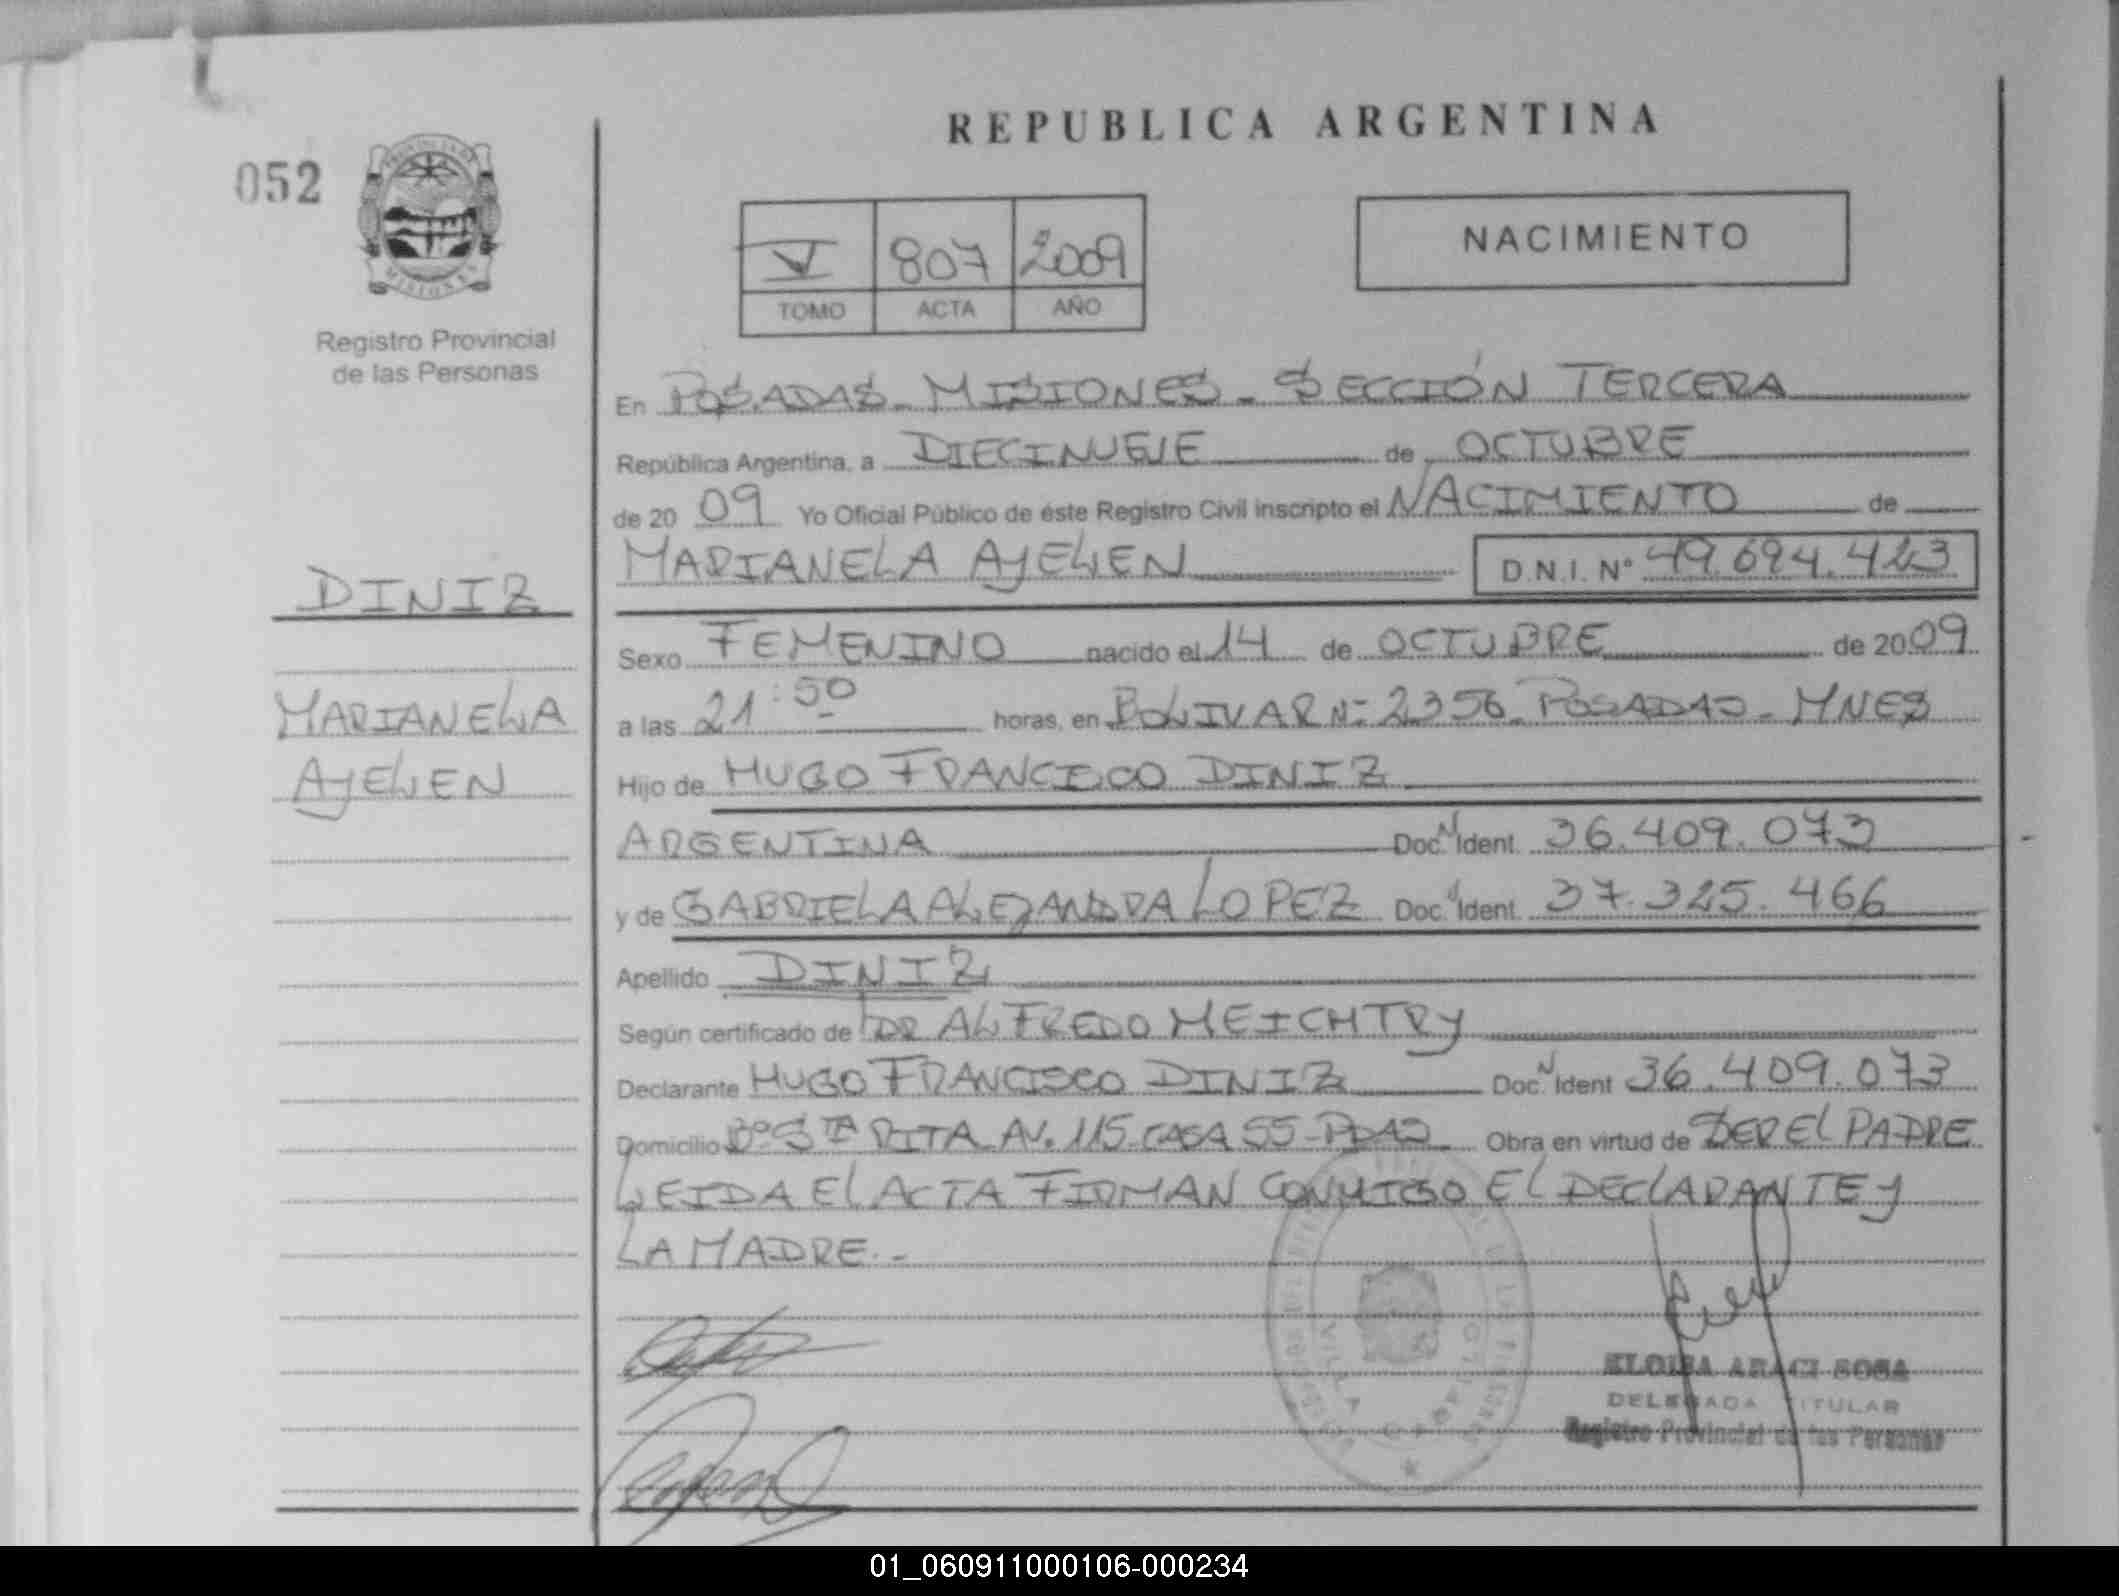 REPUBLICA ARGENTINA
052
PROVINCIA DE
MISIONES
Registro Provincial
de las Personas
V 807 2009
TOMO ACTA AÑO
NACIMIENTO
En POSADAS - MISIONES - SECCIÓN TERCERA
República Argentina, a DIECINUEVE de OCTUBRE
de 20 09 Yo Oficial Público de éste Registro Civil inscripto el NACIMIENTO de
MARIANELA AYELEN D.N.I. Nº 49.694.423
DINIZ
MARIANELA
AYELEN
Sexo FEMENINO nacido el 14 de OCTUBRE de 2009
a las 21:50 horas, en BOLIVAR Nº 2356 - POSADAS - MNES
Hijo de HUGO FRANCISCO DINIZ
ARGENTINA Doc. N Ident. 36.409.073
y de GABRIELA ALEJANDRA LOPEZ Doc. N Ident. 37.325.466
Apellido DINIZ
Según certificado de DR ALFREDO MEICHTRY
Declarante HUGO FRANCISCO DINIZ Doc. N Ident 36.409.073
Domicilio Bº STA RITA AV. 115 - CASA 55 - PDAS Obra en virtud de SER EL PADRE
LEIDA EL ACTA FIRMAN CONMIGO EL DECLARANTE Y
LA MADRE.-
ELOISA ARACI SOSA
DELEGADA TITULAR
Registro Provincial de las Personas
01_060911000106-000234